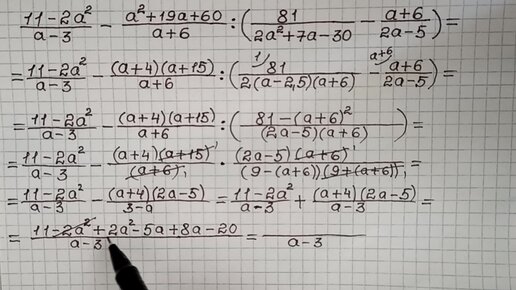 (11-2a²)/(a-3) - (a²+19a+60)/(a+6) : (81/(2a²+7a-30) - (a+6)/(2a-5)) =
= (11-2a²)/(a-3) - ((a+4)(a+15))/(a+6) : (81^1/(2(a-2,5)(a+6)) - (a+6)^(a+6)/(2a-5)) =
= (11-2a²)/(a-3) - ((a+4)(a+15))/(a+6) : ((81-(a+6)²)/((2a-5)(a+6))) =
= (11-2a²)/(a-3) - ((a+4)(a+15)¹)/((a+6)₁) · ((2a-5)(a+6)¹)/((9-(a+6))(9+(a+6))₁) =
= (11-2a²)/(a-3) - ((a+4)(2a-5))/(3-a) = (11-2a²)/(a-3) + ((a+4)(2a-5))/(a-3) =
= (11-2a²+2a²-5a+8a-20)/(a-3) = /(a-3)